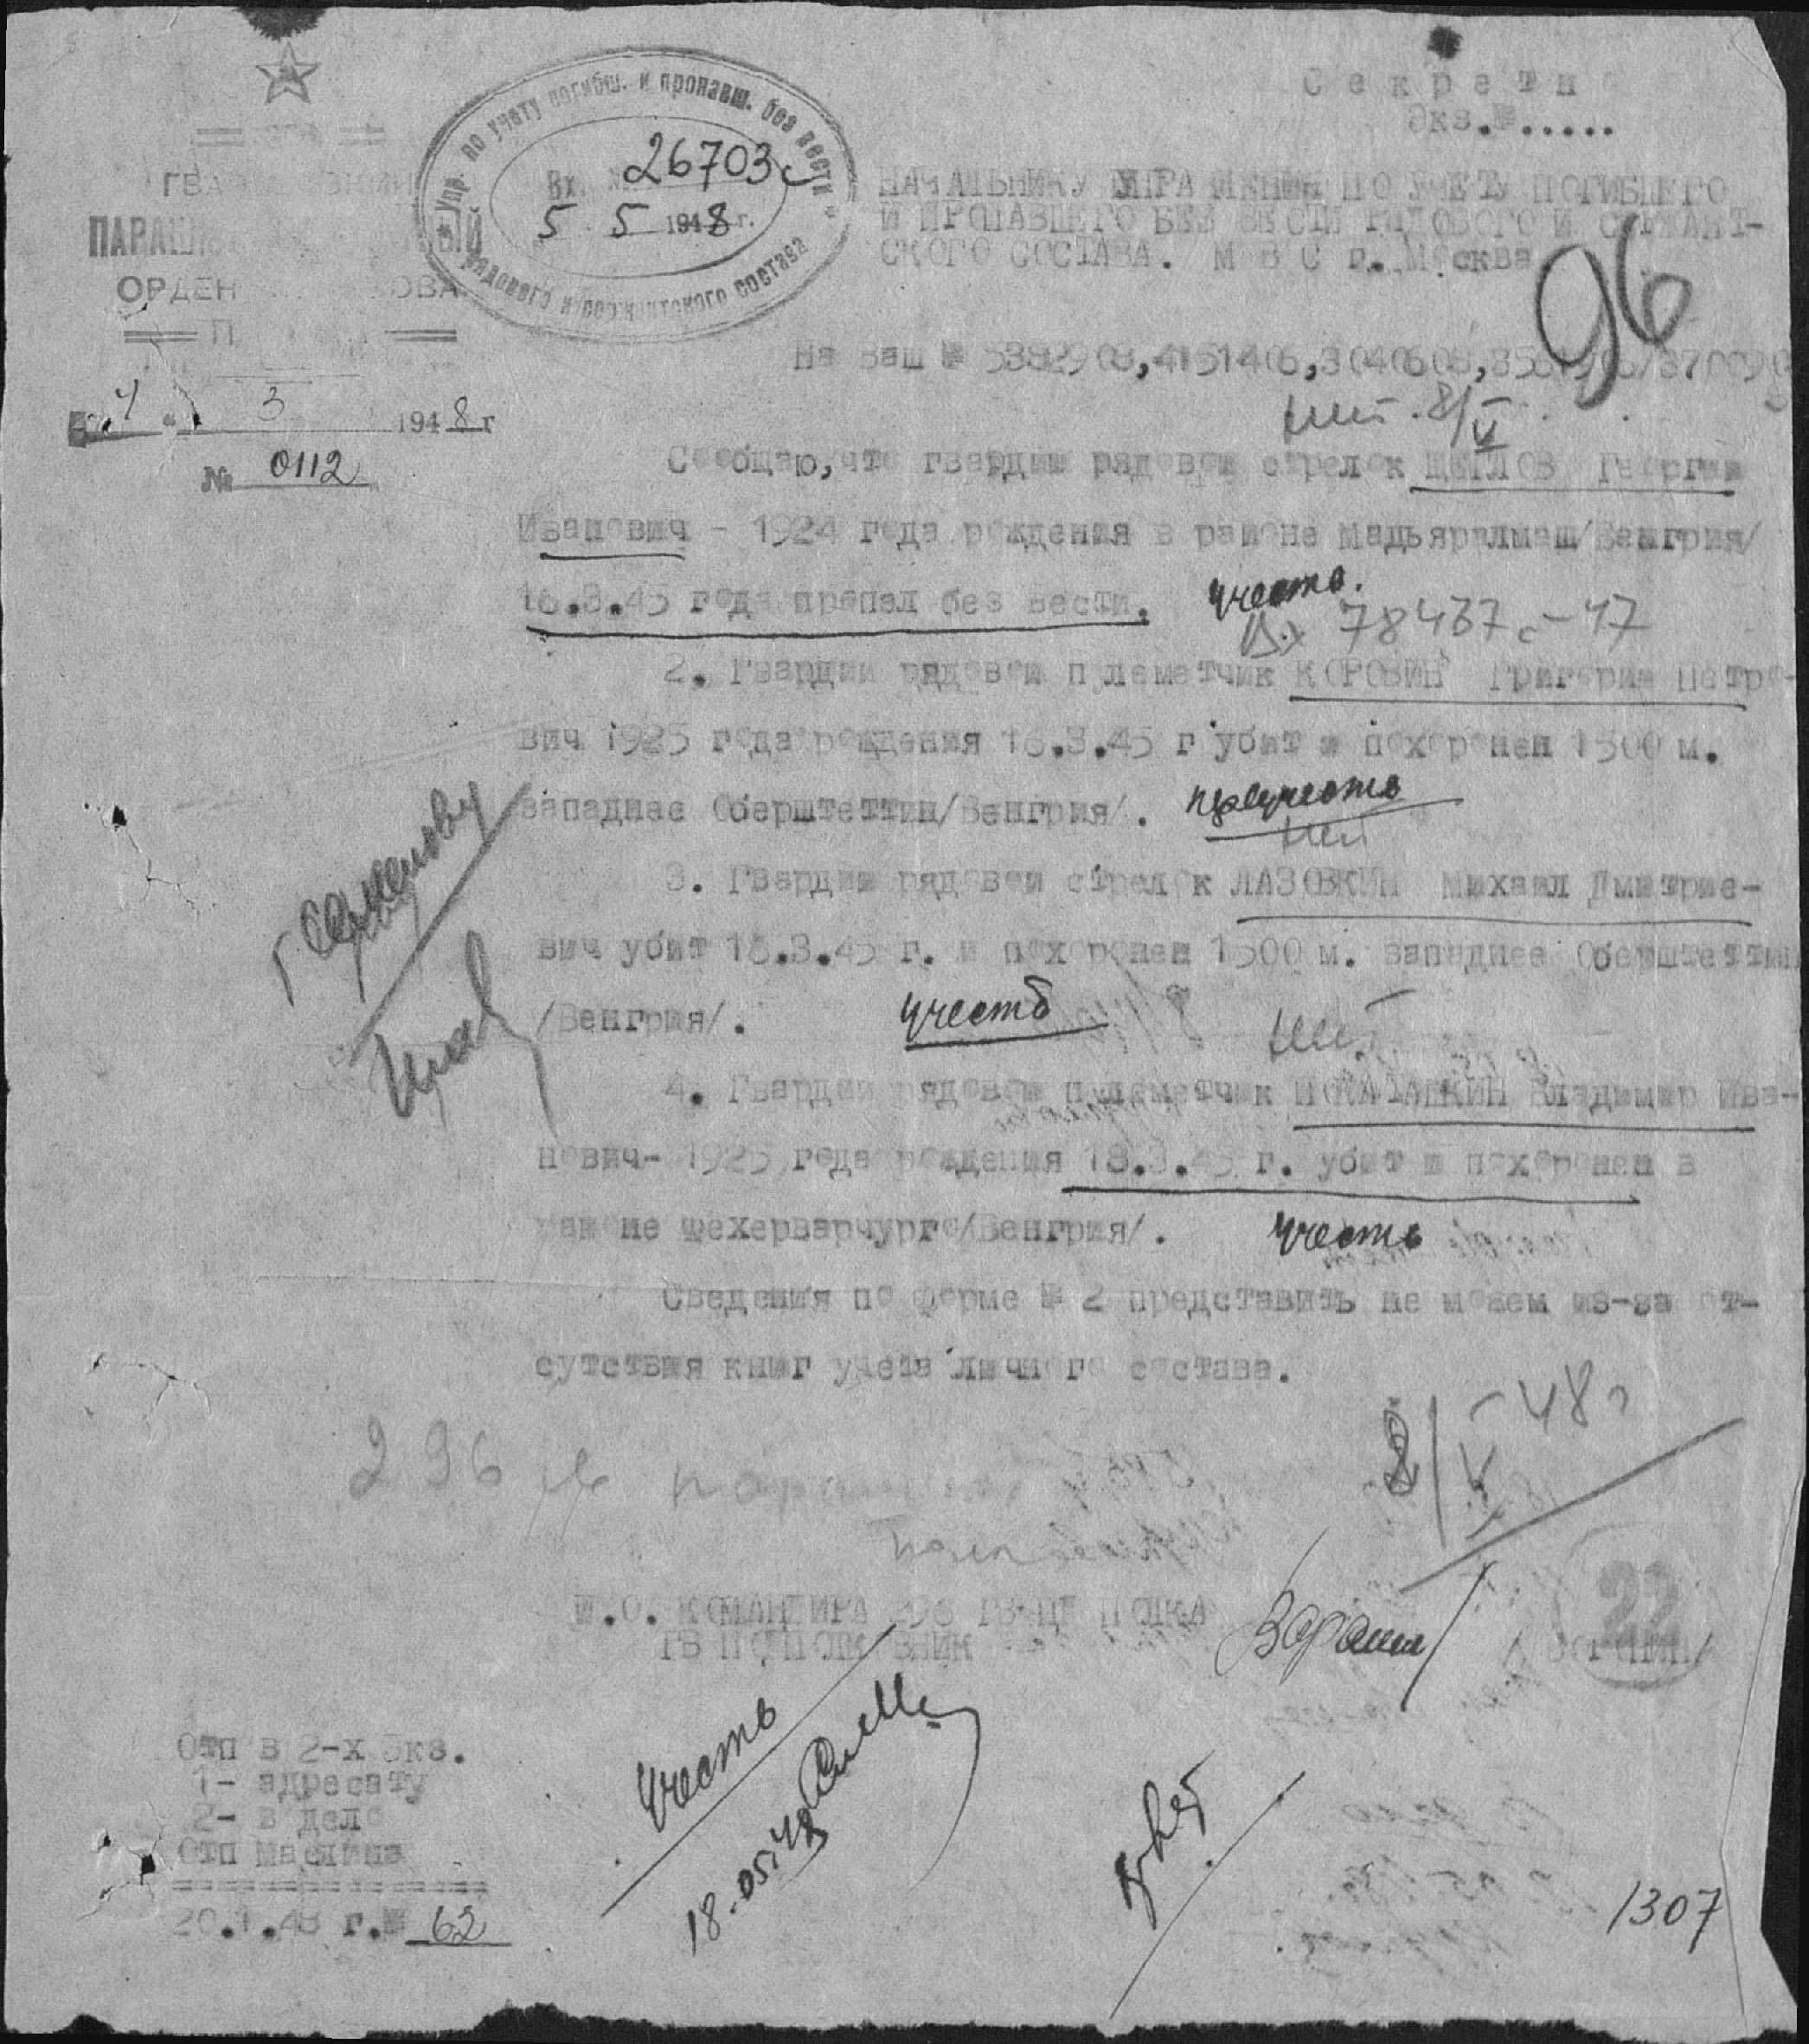 Секретн
Экз.№.....
Упр. по учету погибш. и пропавш. без вести
рядового и сержантского состава
Вх. № 26703с
5 5 1948 г.
НАЧАЛЬНИКУ УПРАВЛЕНИЯ ПО УЧЕТУ ПОГИБШЕГО
И ПРОПАВШЕГО БЕЗ ВЕСТИ РЯДОВОГО И СЕРЖАНТ-
СКОГО СОСТАВА. М В С г. Москва
96
ОРДЕН
На Ваш № 5382908,4151406,3040608,
4 3 1948 г
№ 0112
нет. 8/V
Сообщаю,что гвардии рядовой стрелок ЩЕГЛОВ Георгий
Иванович - 1924 года рождения в районе Мадьяралмаш/Венгрия/
16.3.45 года пропал без вести. учесть.
Вх 78437с-47
2. Гвардии рядовой пулеметчик КОРОВИН Григорий Петро-
вич 1925 года рождения 16.3.45 г убит и похоронен 1500 м.
западнее Оберштеттин/Венгрия/.
нет
3. Гвардии рядовой стрелок ЛАЗОВКИН Михаил Дмитрие-
вич убит 16.3.45 г. и похоронен 1500 м. западнее Оберштеттин
/Венгрия/. учесть нет.
4. Гвардии рядовой пулеметчик Владимир Ива-
нович- 1925 года рождения 18.3.45 г. убит и похоронен в
районе Фехерварчурго/Венгрия/. учесть
Сведения по форме № 2 представить не можем из-за от-
сутствия книг учета личного состава.
8/V-48г
296
И.О. КОМАНДИРА 296 ГВ ПОЛКА
ГВ ПОДПОЛКОВНИК
22
Отп в 2-х экз.
1- адресату
2- в дело
Отп
20.1.48 г.№ 62
учесть
18.05.48
1307